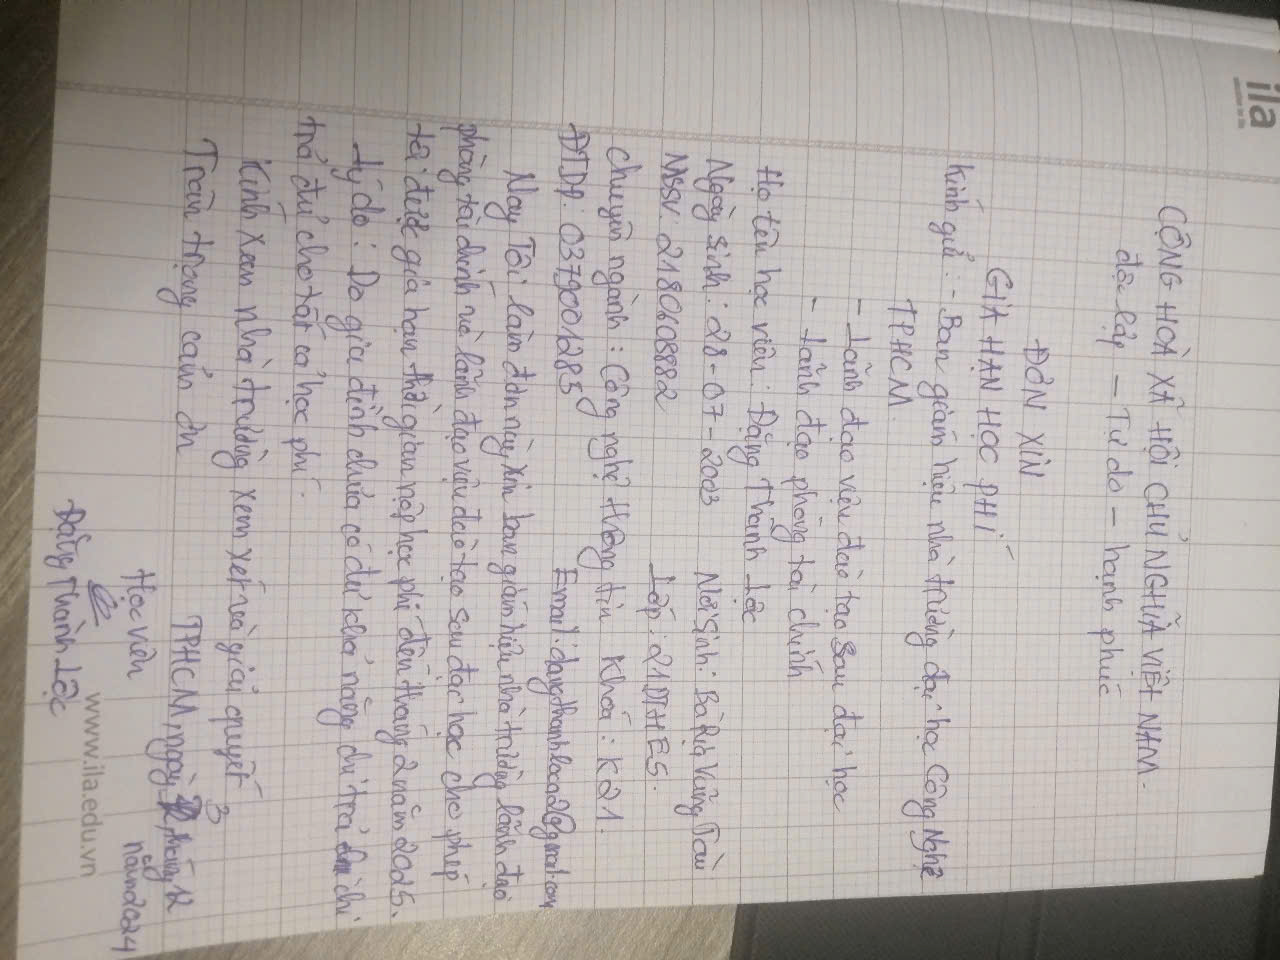 ila
CỘNG HOÀ XÃ HỘI CHỦ NGHĨA VIỆT NAM.
độc lập - Tự do - hạnh phúc
ĐƠN XIN
GIA HẠN HỌC PHÍ
Kính gửi: - Ban giám hiệu nhà trường đại học Công Nghệ
TPHCM
- Lãnh đạo viện đào tạo sau đại học
- Lãnh đạo phòng tài chính
Họ tên học viên: Đặng Thành Lộc
Ngày sinh: 28-07-2003 Nơi sinh: Bà Rịa Vũng Tàu
MSSV: 2180608882 Lớp: 21DTHE5.
Chuyên ngành: Công nghệ thông tin Khoá: K21.
ĐTDĐ: 0379001285 Email: dangthanhloc2@gmail.com
Nay Tôi làm đơn này xin ban giám hiệu nhà trường lãnh đạo
phòng tài chính và lãnh đạo viện đào tạo sau đại học cho phép
tôi được gia hạn thời gian nộp học phí đến tháng 2 năm 2025.
Lý do: Do gia đình chưa có đủ khả năng chi trả chi
trả đủ cho tất cả học phí.
Kính xem nhà trường xem xét và giải quyết
Trân trọng cảm ơn
TPHCM, ngày 3 tháng 12
năm 2024
Học viên
Đặng Thành Lộc
www.ila.edu.vn